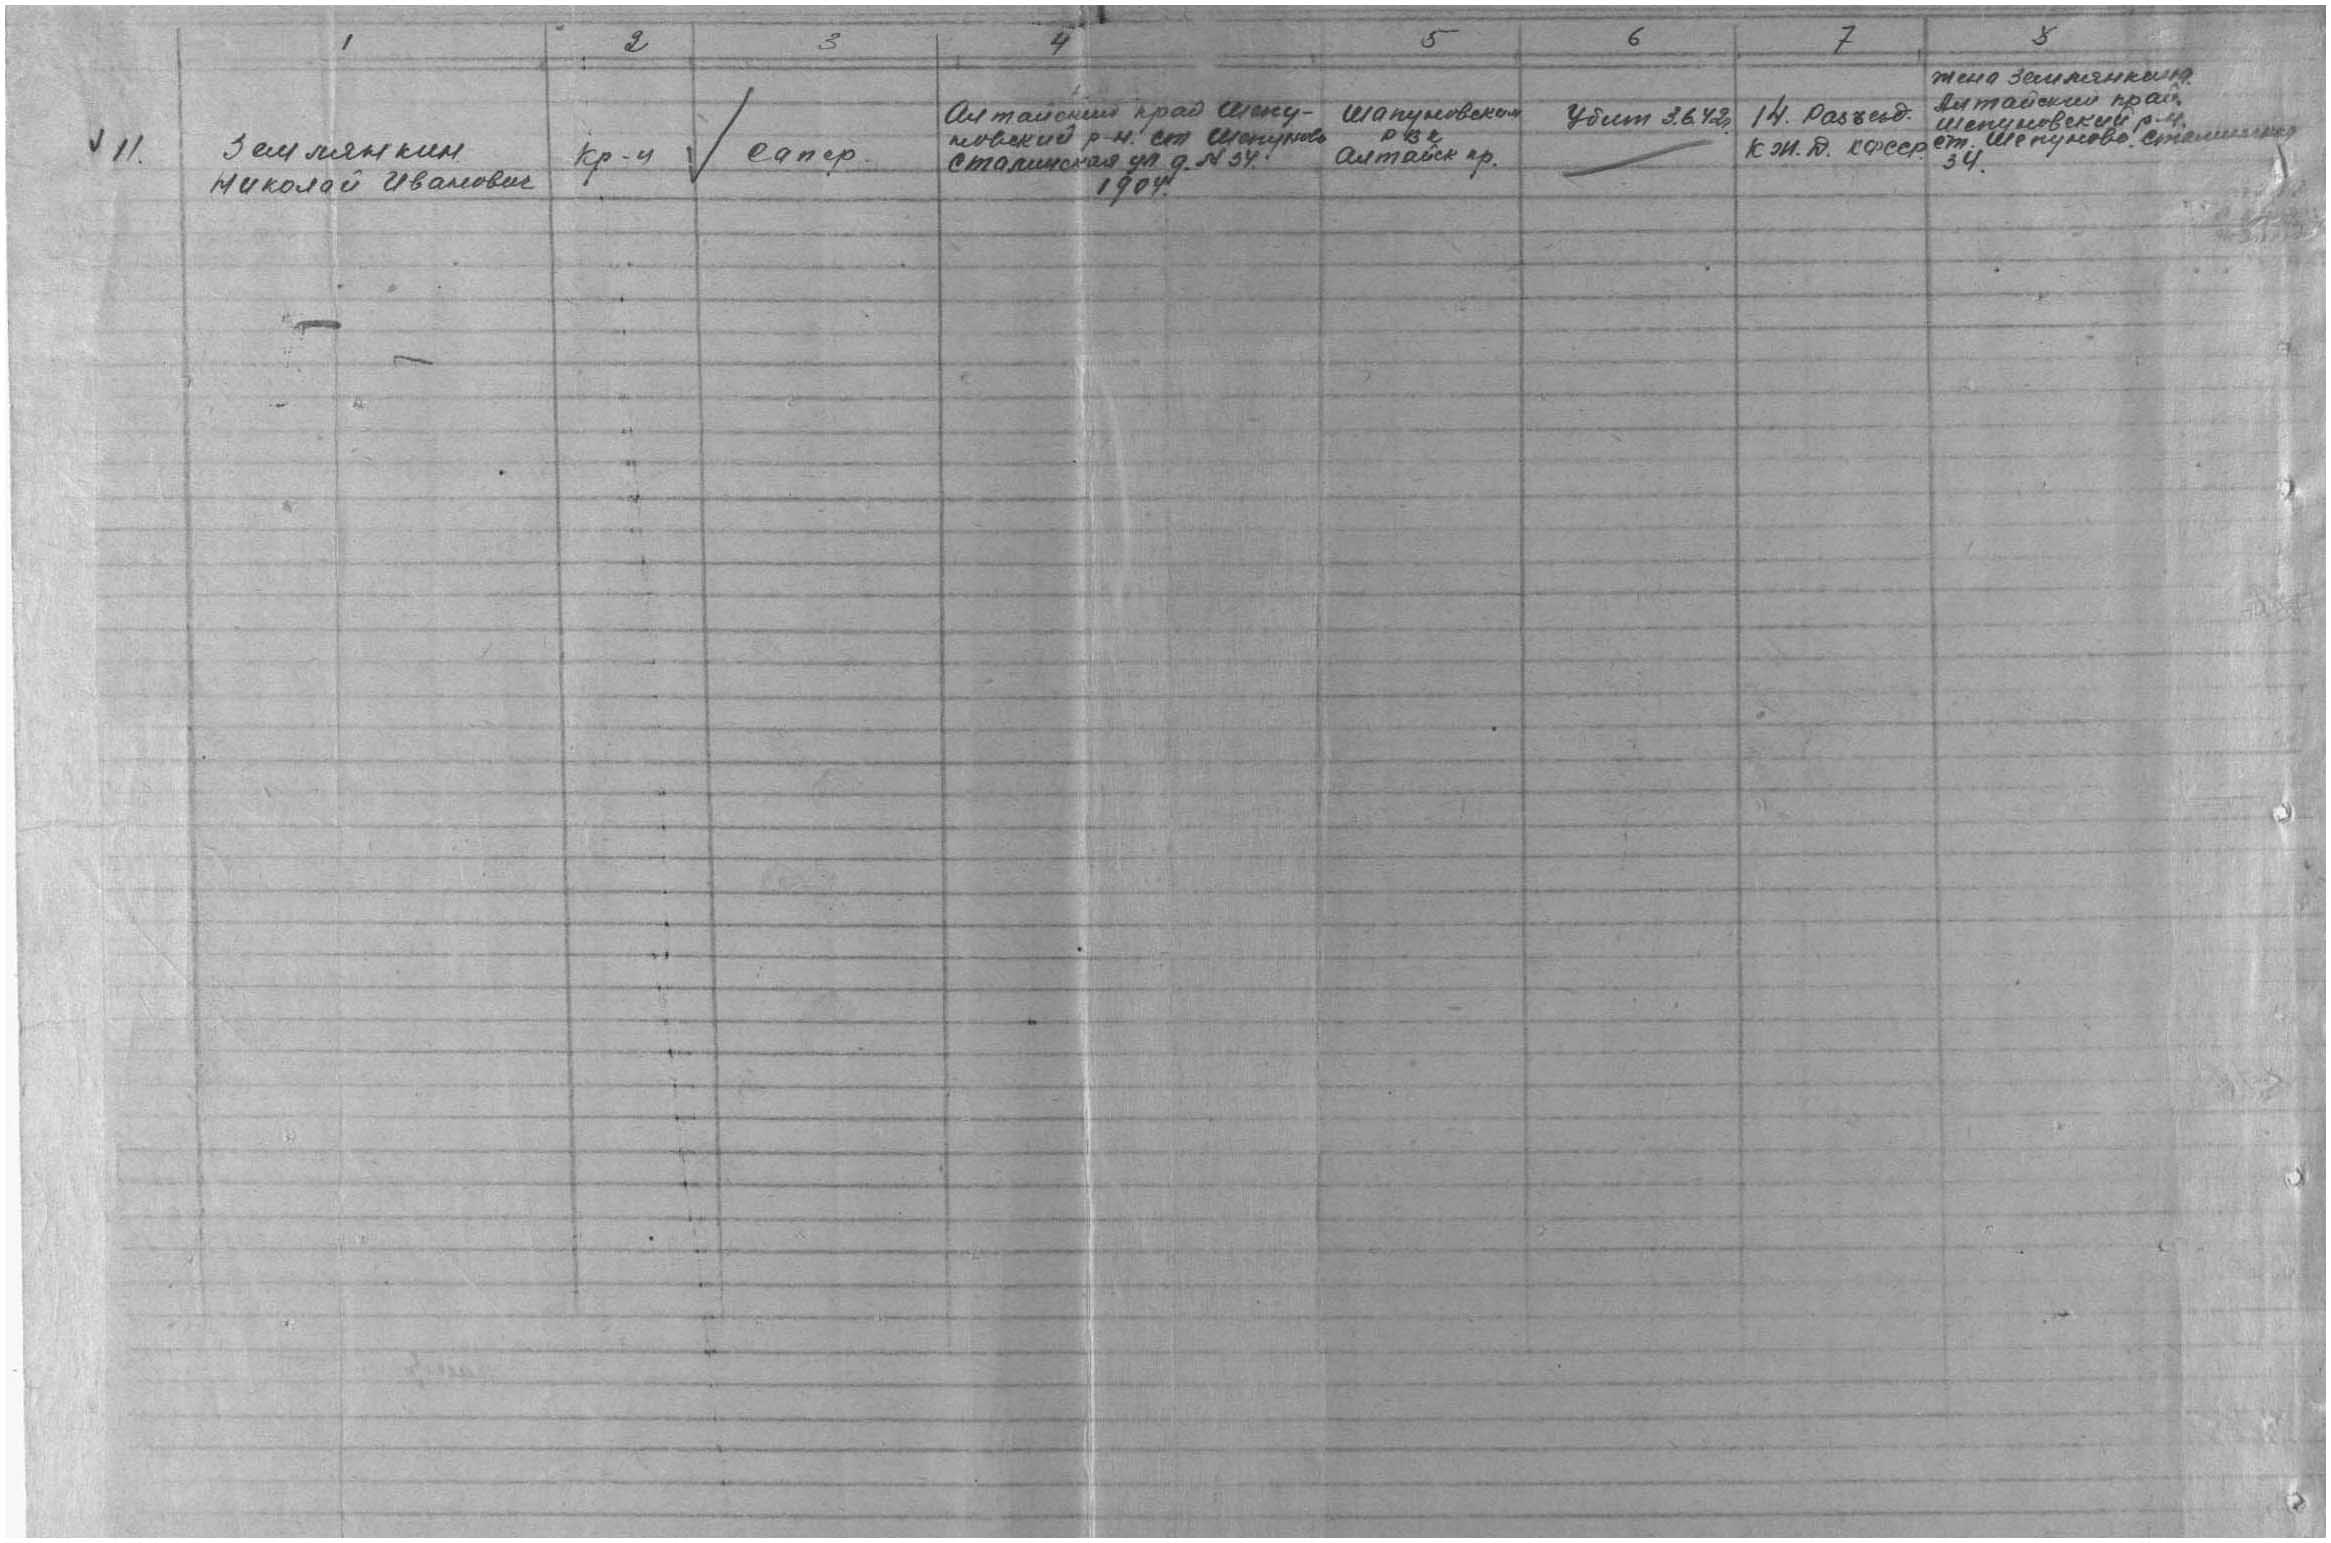 1 2 3 4 5 6 7 8
11.
Землянкин
Николай Иванович
Кр-ц
Сапер.
Алтайский край Шепу-
новский р-н. ст Шепуново
Сталинская ул д. № 34.
1904.
Шапуновским
РВК
Алтайск кр.
Убит 3.6.42г.
14. Разъезд.
К Ж. Д. КФССР.
жена Землянкина.
Алтайский край,
Шепуновский р-н.
ст. Шепуново. Сталинская
34.